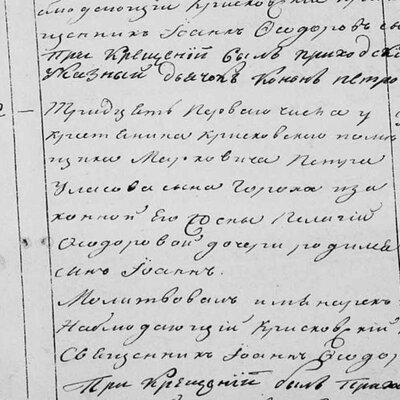 блюдающий Крисковский
щенникъ Іоаннъ Ѳеодоровъ съ
При Крещеніи былъ приходскі
Указный дьячокъ Кононъ Петро
2 — Тридцать Перваго числа у
Крестьянина Крисковскаго помѣ
щика Марковича Петра
Уласова сына Гороха из за
конной Его Жены Пелагіи
Ѳеодоровой дочери родился
сынъ Іоаннъ.
Молитвовалъ и имя нарекъ
Наблюдающій Крисковскій
Священникъ Іоаннъ Ѳеодор
При Крещеніи былъ Прихо